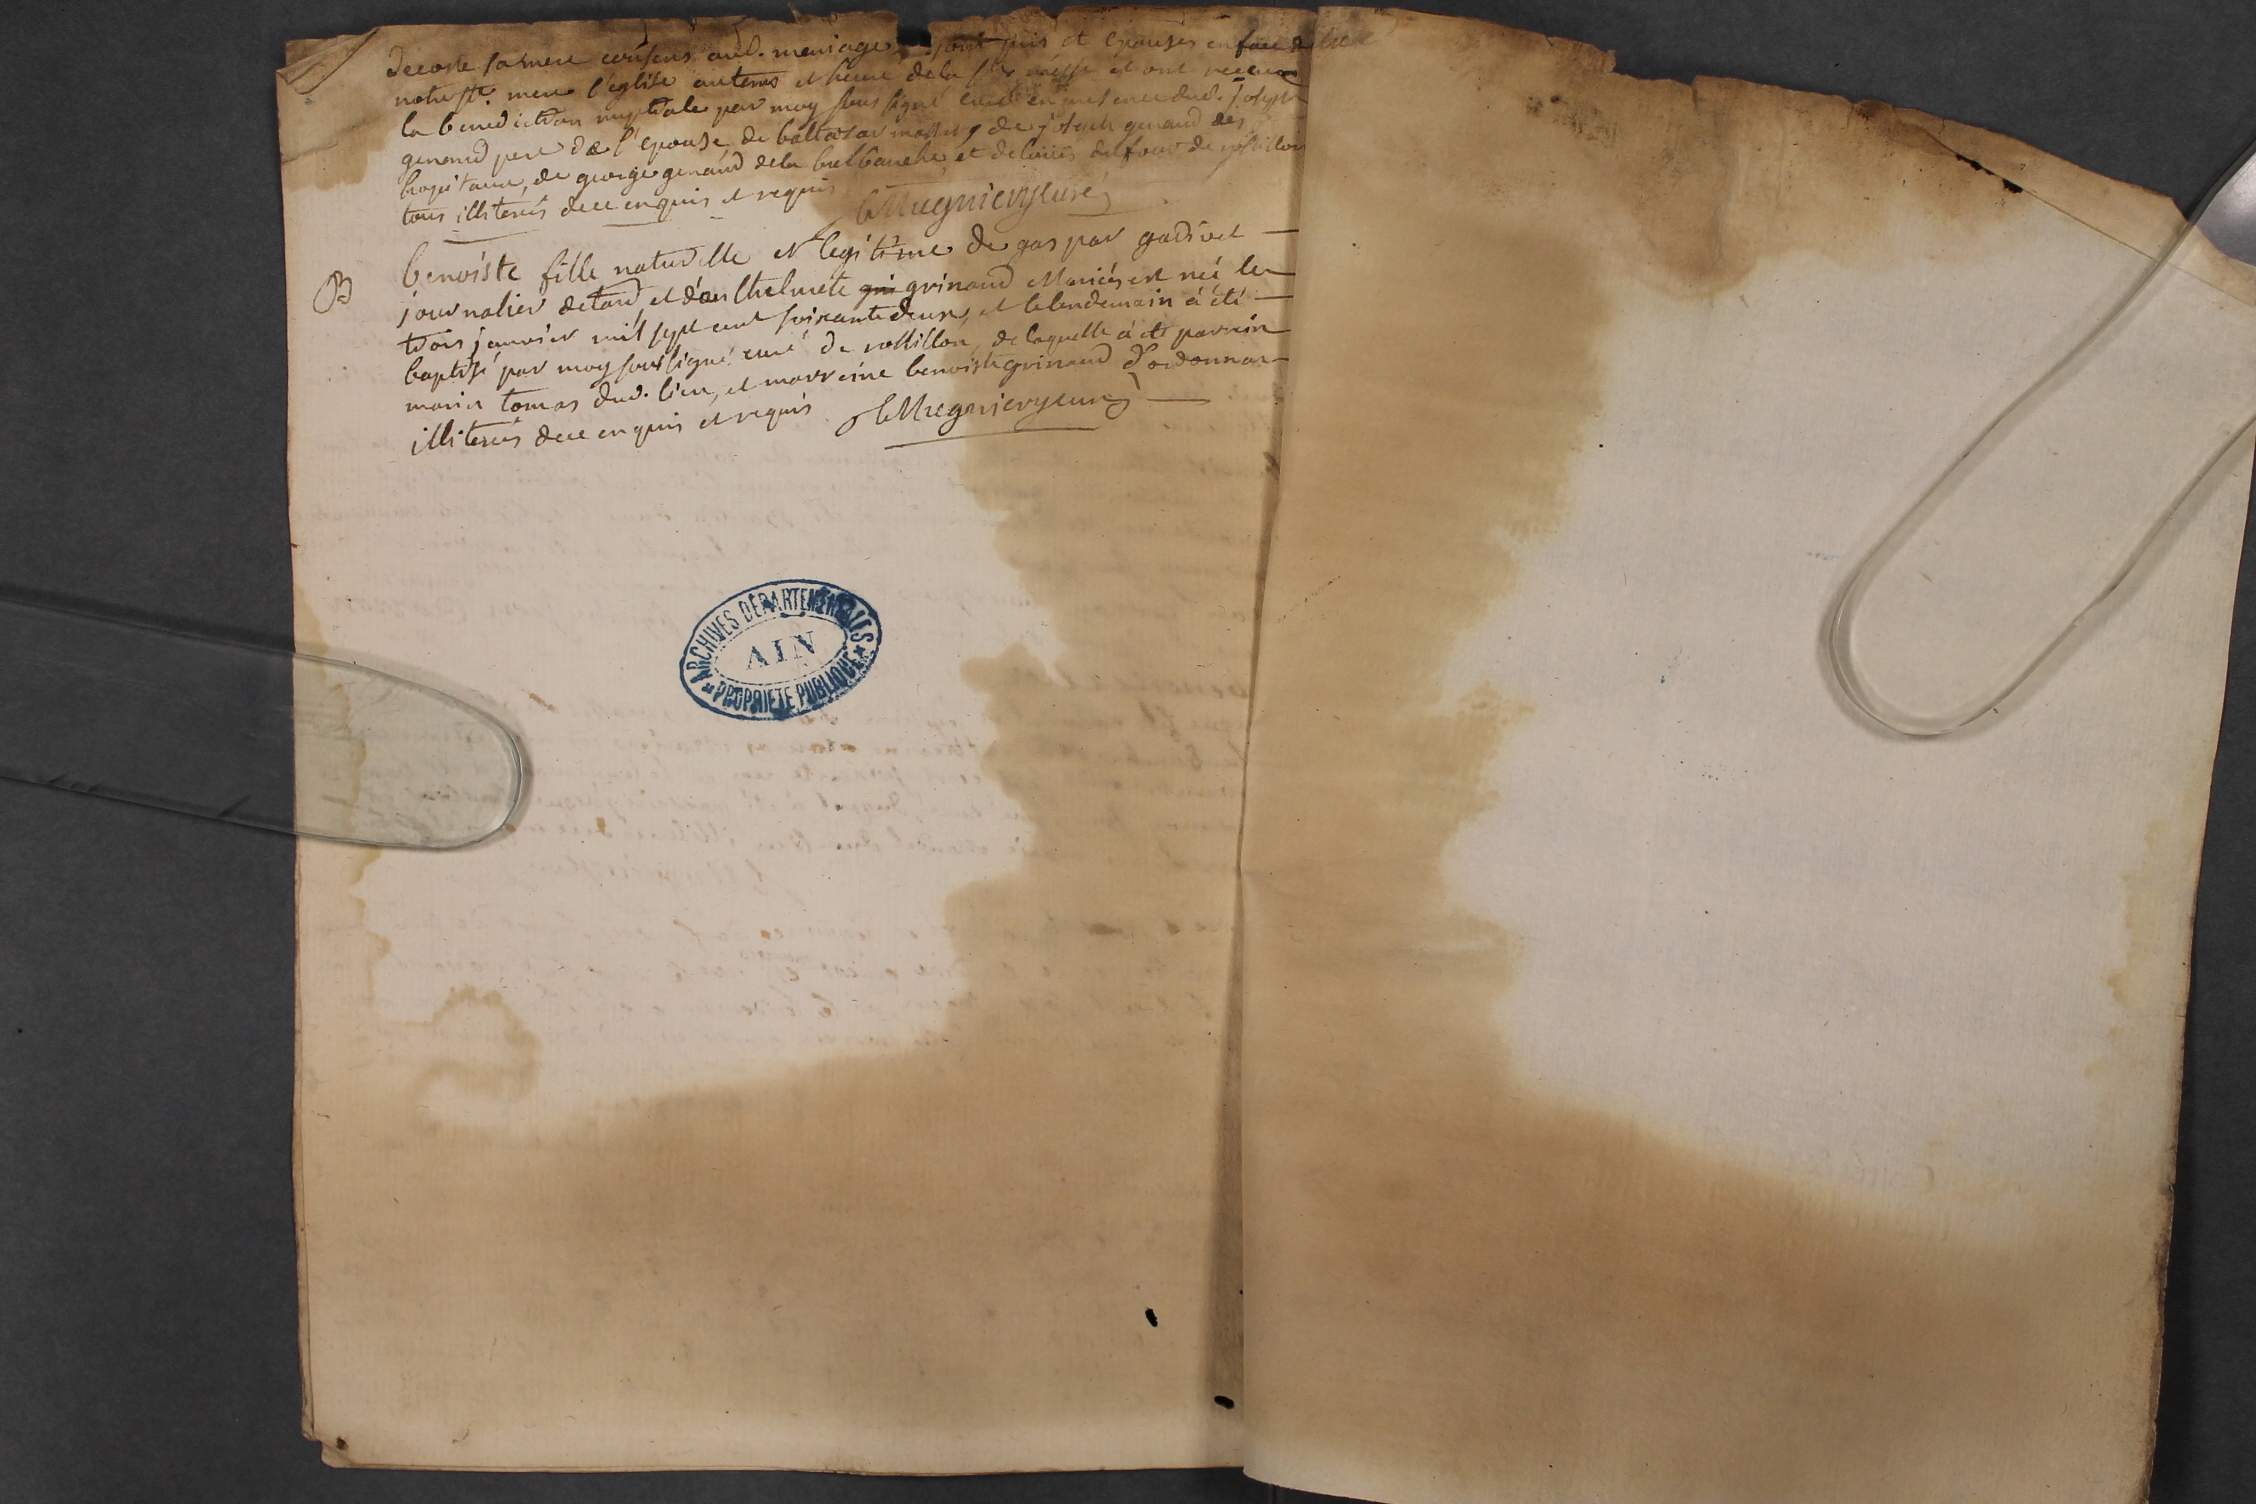 decoste sa mere consens aud. mariage, sont unis et epousés en face de
notre ste. mere l'eglise au tems et heure de la ste messe et ont receu
la benediction nuptiale par moy sous signé curé en presence dud. joseph
genand pere de l'epouse, de baltasar de joseph genand des
hopitaux, de george genand de la et de louis dufour de rossillon
tous illiterés de ce enquis et requis
Mugnieryeuré
B
benoiste fille naturelle et legitime de gaspar godivet
journalier de tard, et d'anthelmete gri grinand Mariés est née le
trois janvier mil sept cent soixante deux, et le lendemain à été
baptisé par moy sous signé curé de rossillon, de laquelle à été parrein
marin tomas dud. lieu, et marreine benoiste grinand d'ordonnas
illiterés de ce enquis et requis Mugnierycuré
ARCHIVES DEPARTEMENTALES
AIN
PROPRIETE PUBLIQUE